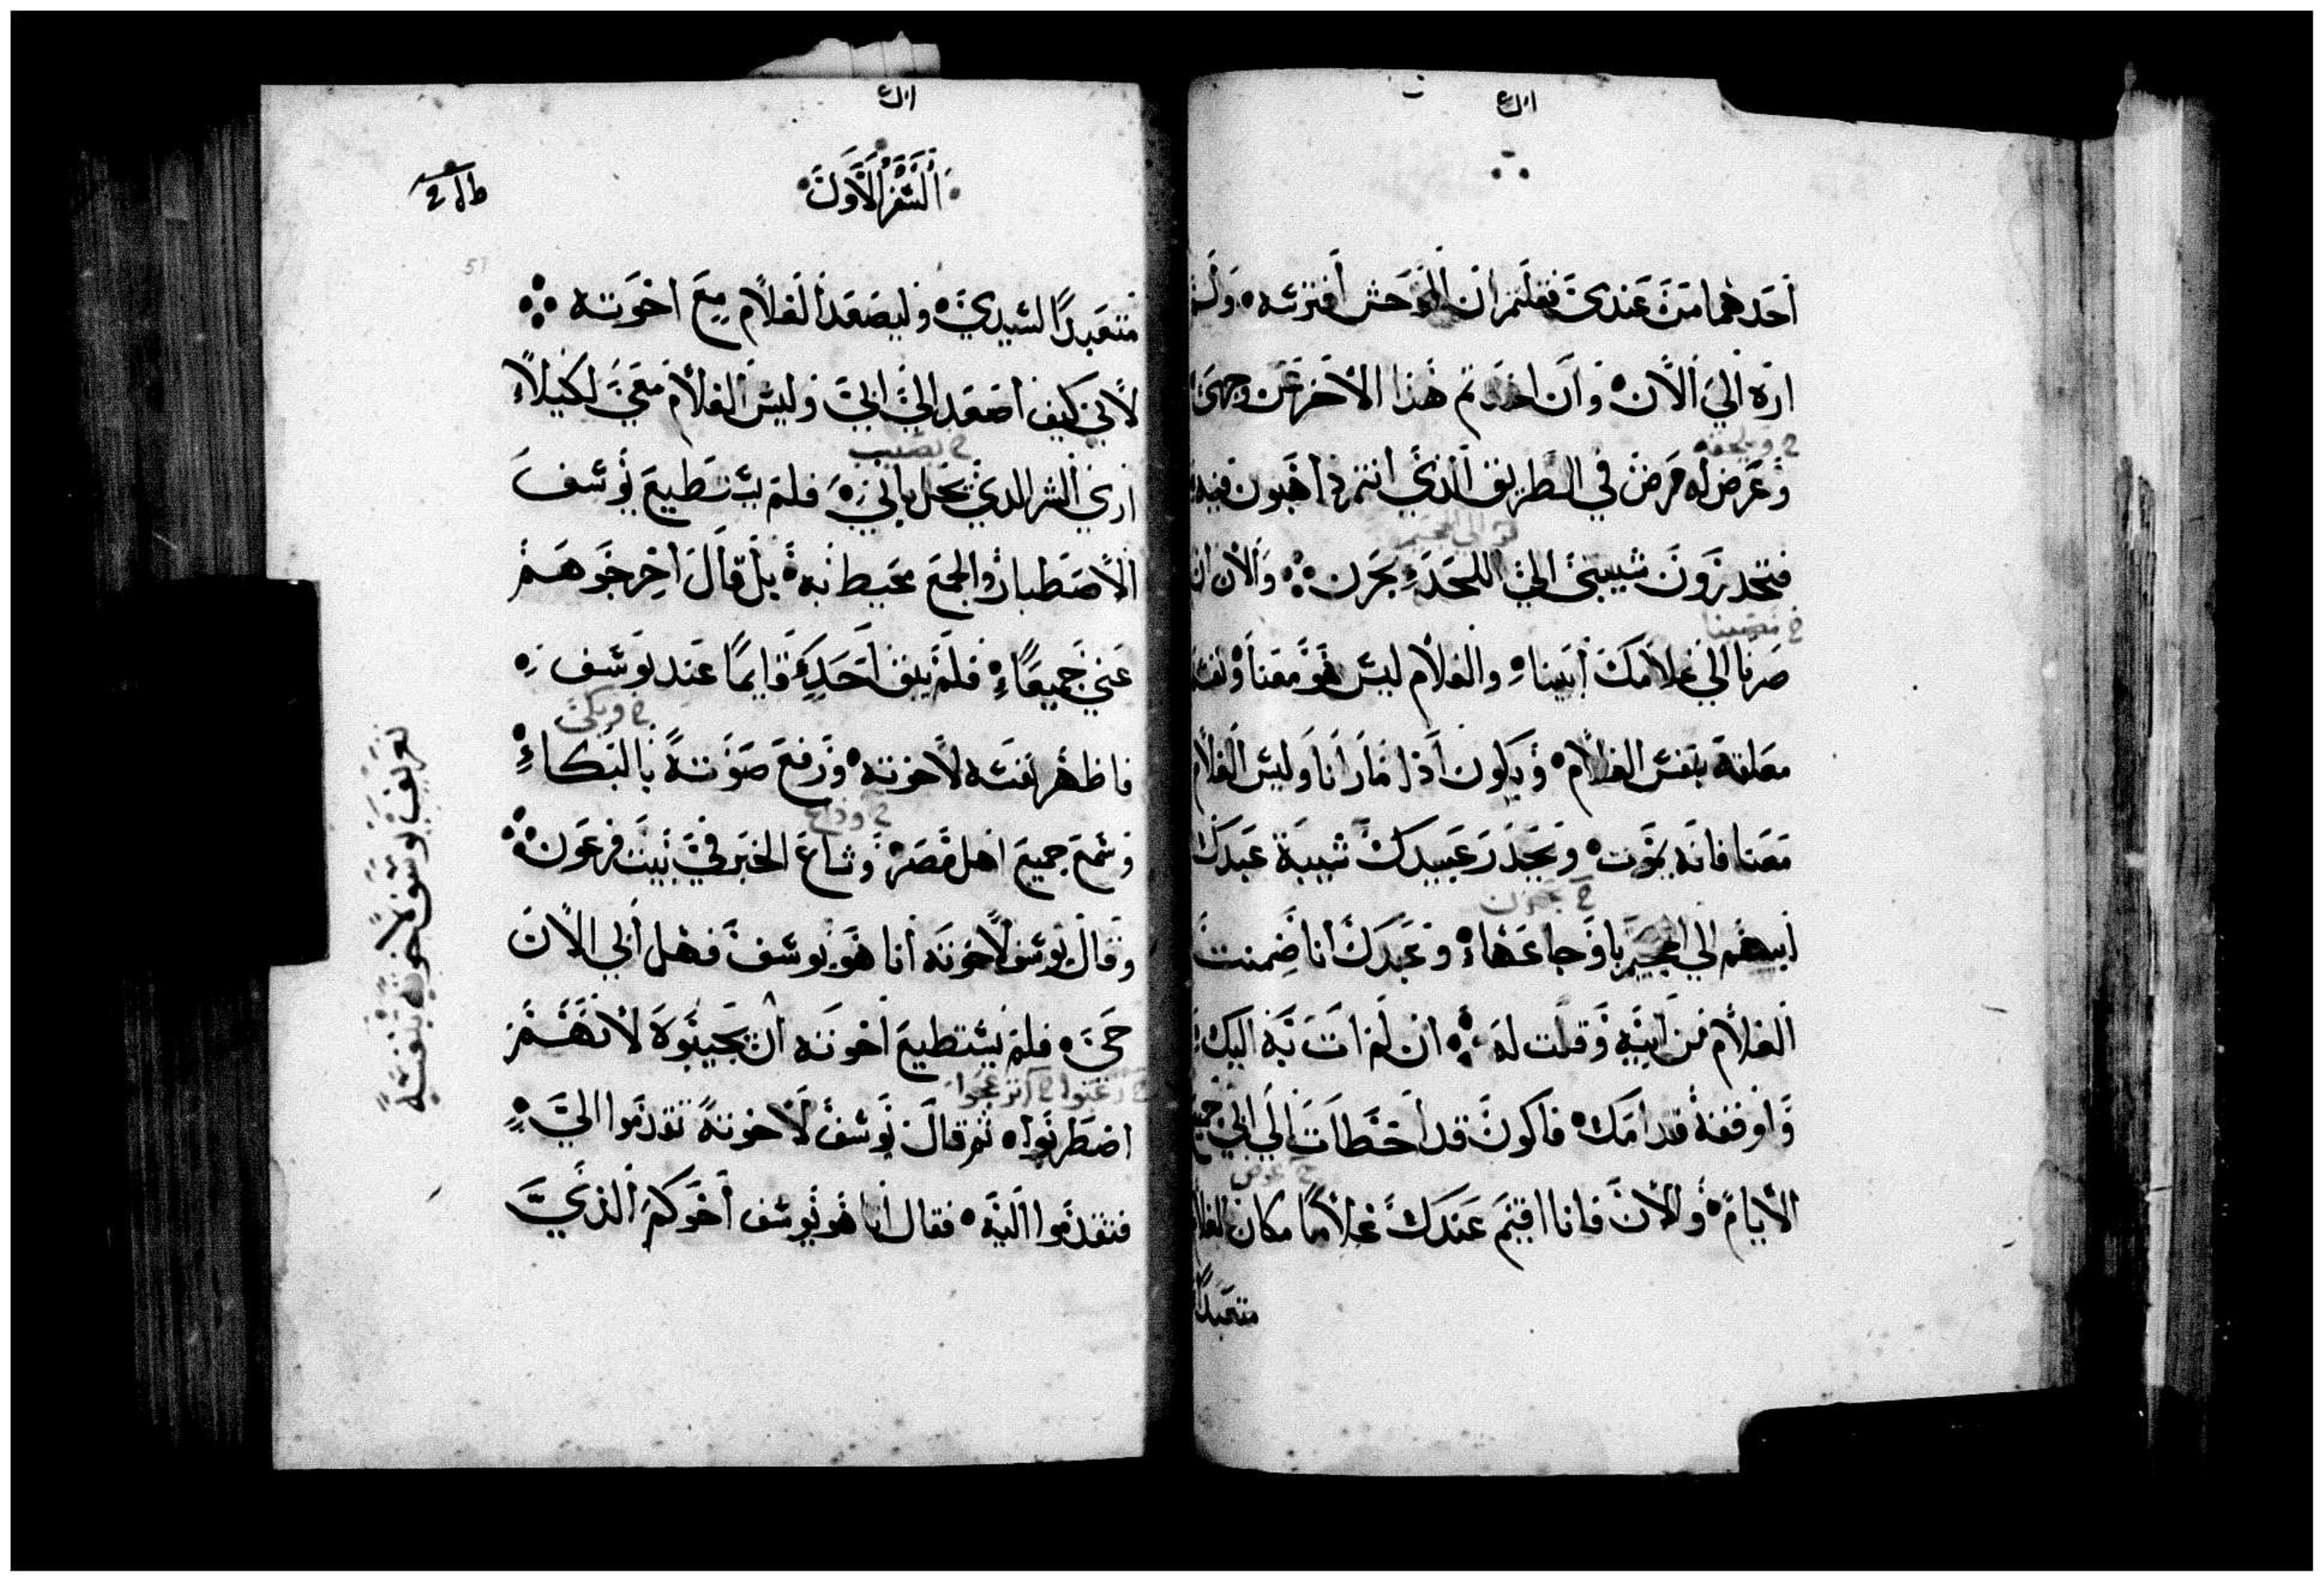 احدهما من عندي فقلتم ان الوحش افترسه ولم
اره الي الان وان اخذتم هذا الاخر عن وجهي
خ ويلحقه
وعرض له مرض في الطريق الذي انتم ذاهبون فيه
فتحدرون شيبتي الي اللحد بحزن والان ان
صرنا الي غلامك ابينا والغلام ليس هو معنا ونفسه
معلقة بنفس الغلام ويكون اذا ما رانا وليس الغلام
معنا فانه يموت ويحدر عبيدك شيبة عبدك
خ بحزن
ابيهم الي الجحيم باوجاعها وعبدك انا ضمنت
الغلام من ابيه وقلت له ان لم ات به اليك
واوقفه قدامك فاكون قد اخطات الي ابي جميع
خ عوض
الايام والان فانا اقيم عندك غلاما مكان الغلام
متعبدا
السفر الاول
51
متعبدا لسيدي وليصعد الغلام مع اخوته
لاني كيف اصعد الي ابي وليس الغلام معي لكيلا
خ يصيب
اري الشر الذي يحل بابي فلم يستطيع يوسف
الاصطبار والجمع محيط به بل قال اخرجوهم
عني جميعا فلم يبق احد قايما عند يوسف
خ وبكي
فاظهر نفسه لاخوته ورفع صوته بالبكاء
خ وذاع
وسمع جميع اهل مصر وشاع الخبر في بيت فرعون
وقال يوسف لاخوته انا هو يوسف فهل ابي الان
حي فلم يستطيع اخوته ان يجيبوه لانهم
خ انزعجوا
اضطربوا ثم قال يوسف لاخوته تقدموا الي
فتقدموا اليه فقال انا هو يوسف اخوكم الذي
تعريف يوسف لاخوته بنفسه